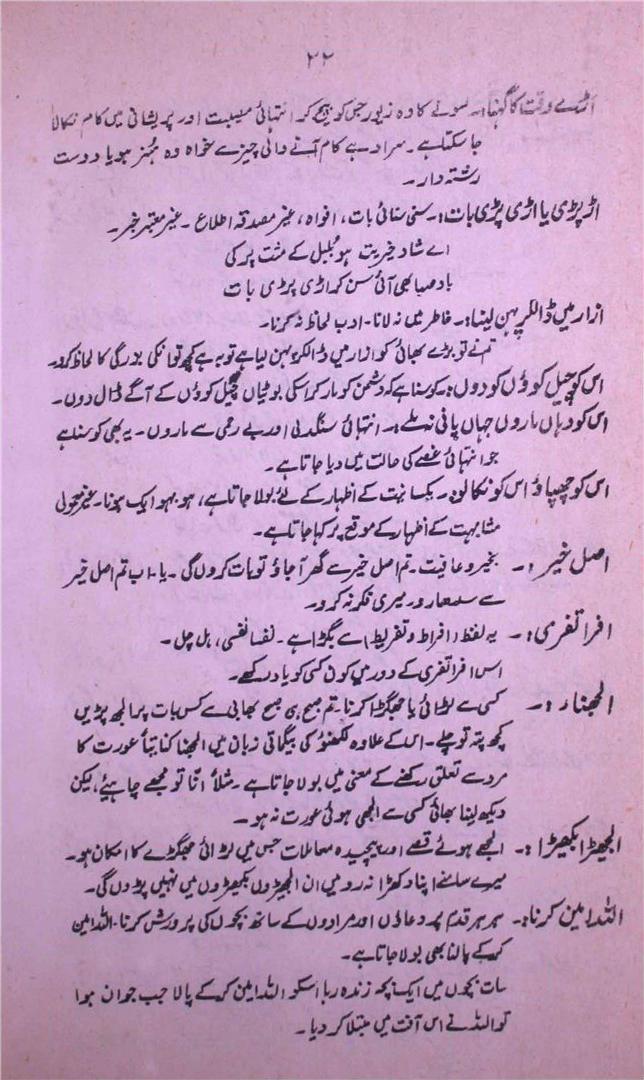 ۲۲
اڑے وقت کا گہنا:۔ سونے کا وہ زیور جس کو بیچ کر انتہائی مصیبت اور پریشانی میں کام نکالا
جا سکتا ہے ۔ مراد ہے کام آنے والی چیز سے خواہ وہ ہُنر ہو یا دوست
رشتہ دار ۔
اڑ پڑی یا اڑی پڑی بات:۔ سنی سنائی بات ، افواہ ، غیر مصدقہ اطلاع ۔ غیر معتبر خبر ۔
اے شاد خیریت ہو بُلبل کے مشت پر کی
باد صبا بھی آئی سن کر اڑی پڑی بات
ازار میں ڈالکر پہن لینا:۔ خاطر میں نہ لانا ۔ ادب لحاظ نہ کرنا ۔
تم نے تو بڑے بھائی کو ازار میں ڈالکر پہن لیا ہے توبہ ہے کچھ تو انکی بزرگی کا لحاظ کرو ۔
اس کو چیل کوؤں کو دوں:۔ کوسنا ہے کہ دشمن کو مار کر اسکی بوٹیاں چیل کوؤں کے آگے ڈال دوں ۔
اس کو وہاں ماروں جہاں پانی نہ ملے:۔ انتہائی سنگدلی اور بے رحمی سے ماروں ۔ یہ بھی کوسنا ہے
جو انتہائی غصے کی حالت میں دیا جاتا ہے ۔
اس کو چھپاؤ اس کو نکالو:۔ یکسانیت کے اظہار کے لئے بولا جاتا ہے ، ہو بہو ایک ہونا ۔ غیر معمولی
مشابہت کے اظہار کے موقع پر کہا جاتا ہے ۔
اصل خیر :۔ بخیر و عافیت ۔ تم اصل خیر سے گھر آجاؤ تو بات کروں گی ۔ یا ۔ اب تم اصل خیر
سے سدھارو میری فکر نہ کرو ۔
افراتفری :۔ یہ لفظ (افراط و تفریط) سے بگڑا ہے ۔ نفسا نفسی ، ہل چل ۔
اس افراتفری کے دور میں کون کسی کو یاد رکھے ۔
الجھنا :۔ کسی سے لڑائی یا جھگڑا کرنا ۔ تم صبح ہی صبح بھابی سے کس بات پر الجھ پڑیں
کچھ پتہ تو چلے ۔ اس کے علاوہ لکھنؤ کی بیگماتی زبان میں الجھنا کنایتاً عورت کا
مرد سے تعلق رکھنے کے معنی میں بولا جاتا ہے ۔ مثلاً انّا تو مجھے چاہیئے ، لیکن
دیکھ لینا بھائی کسی سے الجھی ہوئی عورت نہ ہو ۔
الجھیڑا بکھیڑا :۔ الجھے ہوئے قصے اور پیچیدہ معاملات جس میں لڑائی جھگڑے کا امکان ہو ۔
میرے سامنے اپنا دکھڑا نہ رو میں ان الجھیڑوں بکھیڑوں میں نہیں پڑوں گی ۔
اللہ امین کرنا:۔ ہر ہر قدم پر دعاؤں اور مرادوں کے ساتھ بچوں کی پرورش کرنا ۔ اللہ امین
کر کے پالنا بھی بولا جاتا ہے ۔
سات بچوں میں ایک بچہ زندہ رہا اسکو اللہ امین کر کے پالا جب جوان ہوا
تو اللہ نے اس آفت میں مبتلا کر دیا ۔